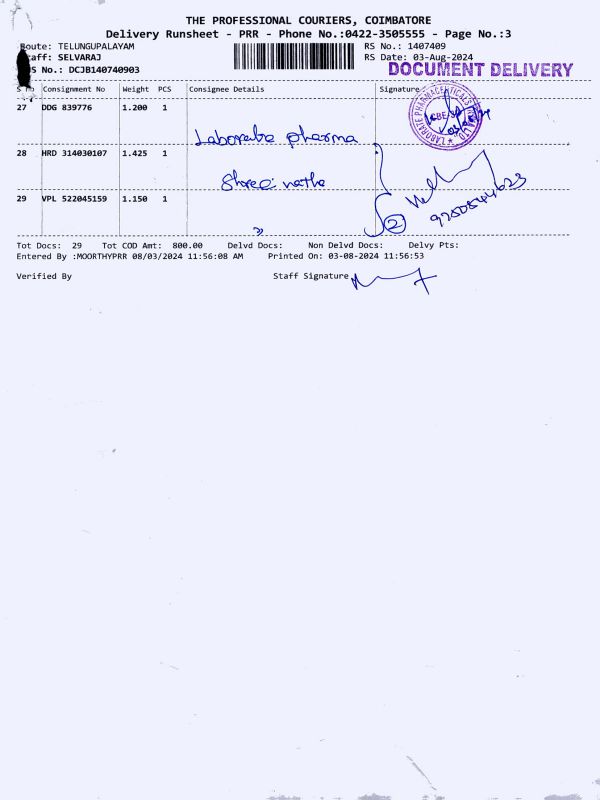 THE PROFESSIONAL COURIERS, COIMBATORE
Delivery Runsheet - PRR - Phone No.:0422-3505555 - Page No.:3
Route: TELUNGUPALAYAM RS No.: 1407409
Staff: SELVARAJ RS Date: 03-Aug-2024
S No.: DCJB140740903 DOCUMENT DELIVERY
S No Consignment No Weight PCS Consignee Details Signature
27 DDG 839776 1.200 1
Laborate pharma
28 HRD 314030107 1.425 1
Shree natha
29 VPL 522045159 1.150 1
2
Tot Docs: 29 Tot COD Amt: 800.00 Delvd Docs: Non Delvd Docs: Delvy Pts:
Entered By :MOORTHYPRR 08/03/2024 11:56:08 AM Printed On: 03-08-2024 11:56:53
Verified By Staff Signature